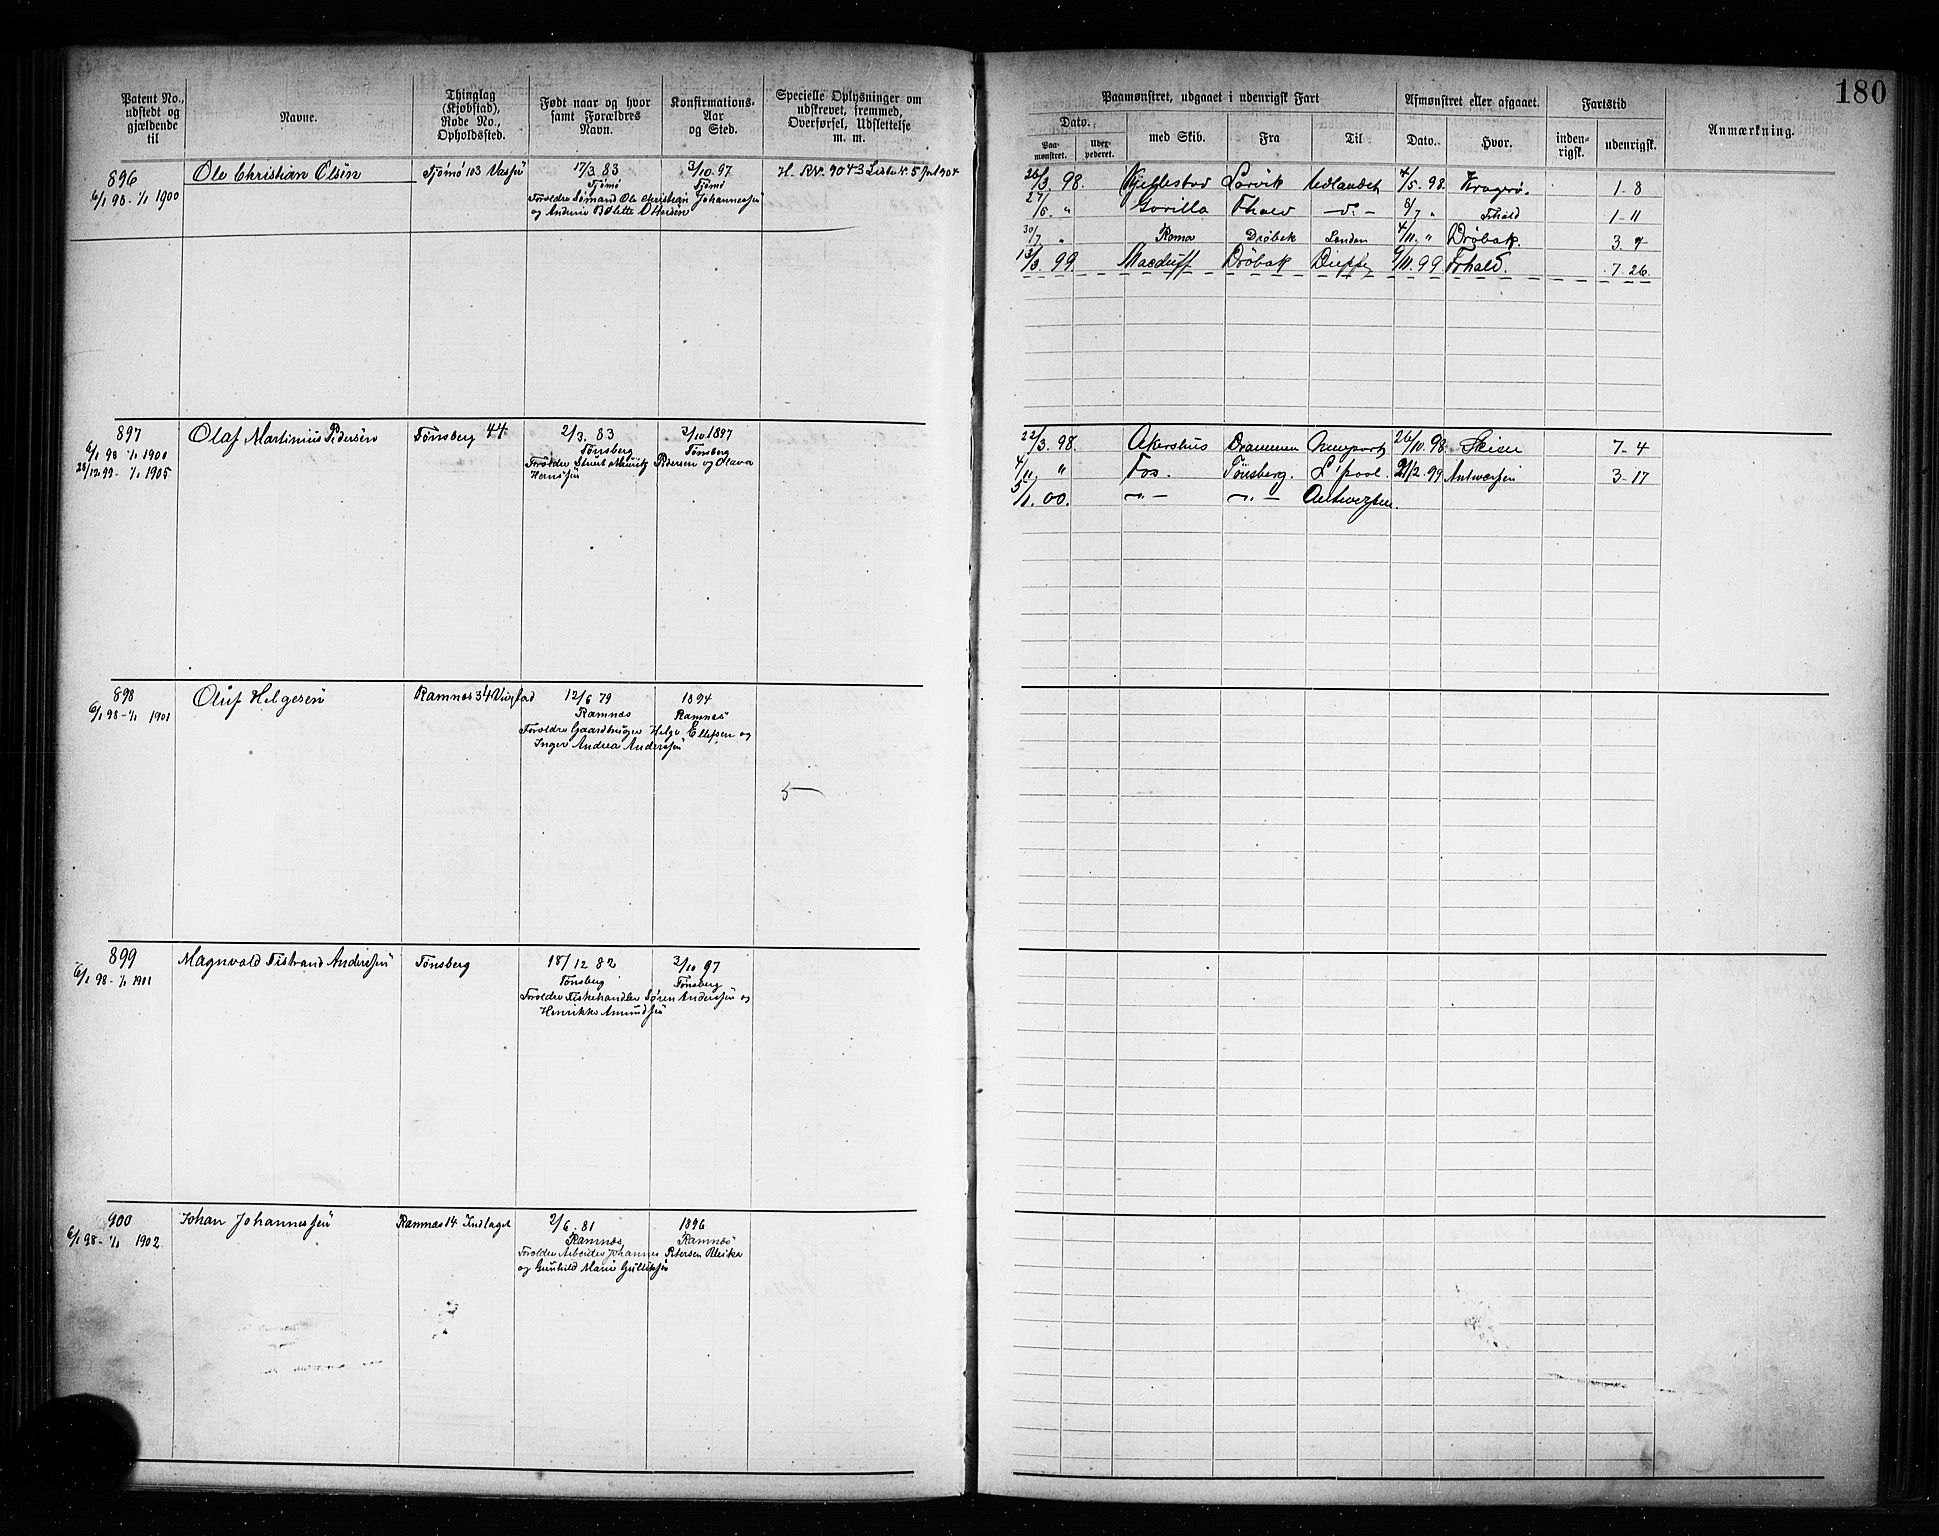 180
Patent No., udstedt og gjældende til
Navne.
Thinglag (Kjøbstad), Rode No., Opholdssted.
Født naar og hvor samt Forældres Navn.
Konfirmations-Aar og Sted.
Specielle Oplysninger om udskrevet, fremmed, Overførsel, Udslettelse m. m.
Paamønstret, udgaaet i udenrigsk Fart
Afmønstret eller afgaaet.
Fartstid
Anmærkning.
Dato.
Paamønstret.
med Skib.
Fra
Til
Dato.
Hvor.
indenrigsk.
udenrigsk.
896
6/1 98 - 1/1 1900
Ole Christian Olsen
Tjømø 103
17/3 83
Tjømø
Forældre Sømand Ole Christian Johannessen
og Andrine Bolette Ottersen
3/10 97
Tjømø
98. Kjellestad Larvik Udlandet 4/5 98 Kragerø. 1-8
27/5 " Gorilla Fhald - d. - 8/7 " Frhald 1-11
30/7 " Roma Drøbak London 4/11 " Drøbak.
13/3 99 Macduff Drøbak Dieppe 99 Frhald. 7 26
897
6/1 98 - 1/1 1900
28/12 99 - 1/1 1905
Olaf Martinius Pedersen
Tønsberg 44
2/3 83
Tønsberg
2/10 1897
Tønsberg
22/3 98. Akershus Drammen Newport 26/10 98. Skien 7-4
4/11 " Fos. Tønsberg. L'pool. 99 Antwerpen 3-17
5/1 00. - " - - " - Antwerpen.
898
6/1 98 - 1/1 1901
Oluf Helgesen
Ramnæs 34
12/6 79
Ramnæs
Forældre Gaardbruger Helge Ellefsen og
Inger Andrea Anderssen
1894
Ramnæs
5
899
6/1 98 - 1/1 1901
Magnvald Anderssen
Tønsberg
18/12 82
Tønsberg
Forældre Fiskehandler Søren Anderssen og
Henrikke Amundsen
2/10 97
Tønsberg
900
6/1 98 - 1/1 1902
Johan Johannessen
Ramnæs 14 Indlaget
2/6 81
Ramnæs
Forældre Arbeider Johannes Petersen
og Gunhild Marie Gulliksen
1896
Ramnæs